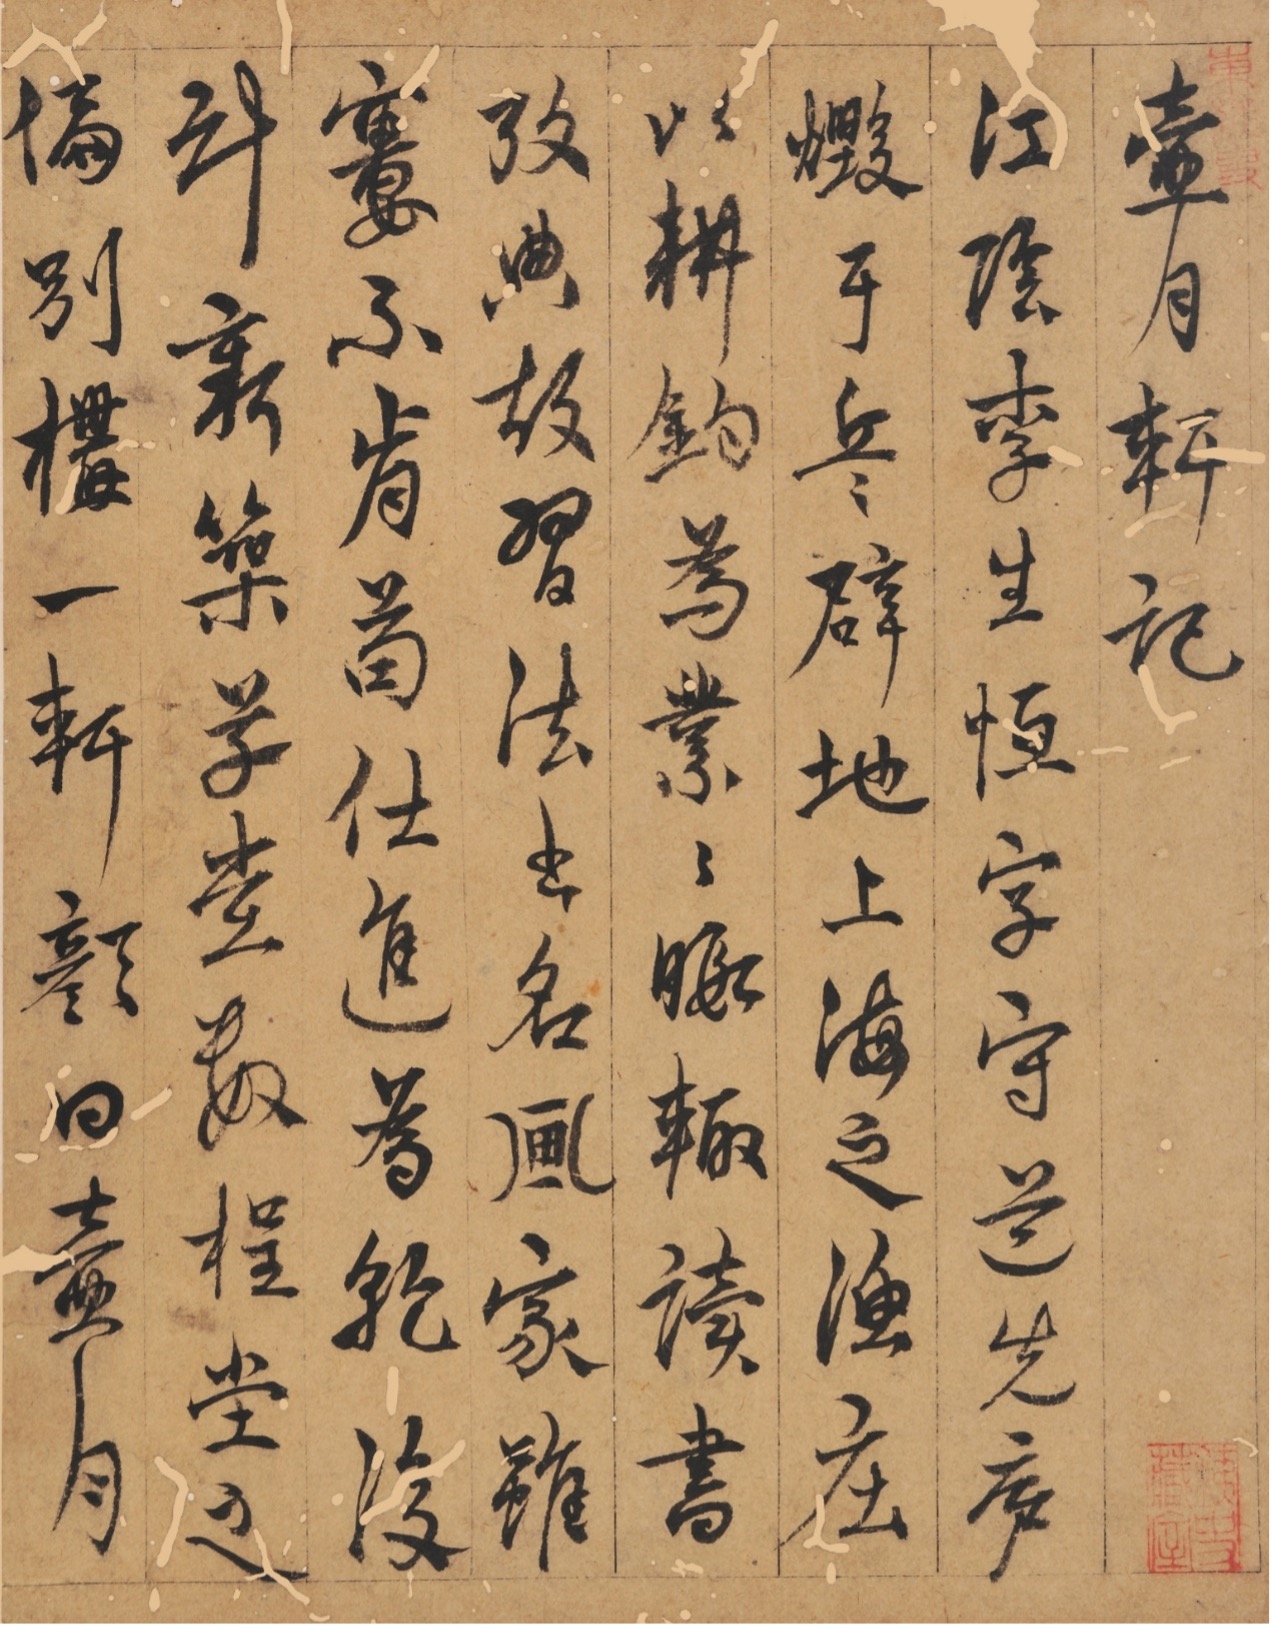 壺月軒記
江陰李生恒字守道先庐
燬于兵辟地上海之漁庄
以耕釣為業〻暇輒讀書
攷典故習法書名画家雖
窶不肯苟仕進為乾沒
計新築草堂數楹堂之
偏別構一軒顏曰壺月